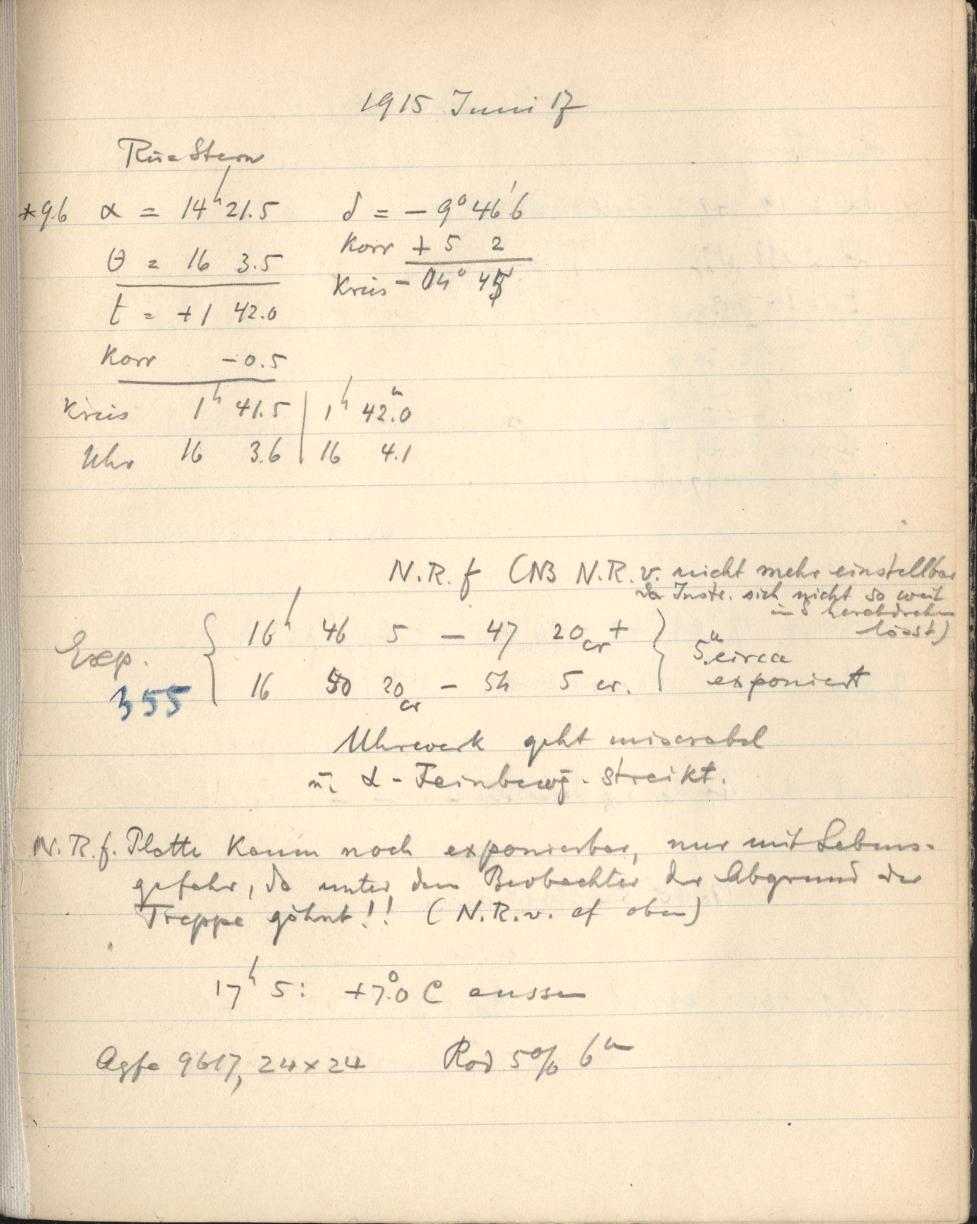 1915 Juni 17
Stern
*9.6 α = 14ʰ 21.5 δ = - 9° 46'6
θ = 16 3.5 Korr + 5 2
t = +1 42.0 Kreis - 04° 45'
Korr -0.5
Kreis 1ʰ 41.5 | 1ʰ 42.0ᵐ
Uhr 16 3.6 | 16 4.1
N.R.f (NB N.R.v. nicht mehr einstellbar
da Instr. sich nicht so weit
in S herabdrehen
lässt)
16ʰ 46 5 - 47 20 cr +
Exp. 5ᵐ circa
355 16 50 20 cr - 54 5 cr. exponiert
Uhrwerk geht miserabel
u. α-Feinbewg. streikt.
N.R.f. Platte kaum noch exponierbar, nur mit Lebens-
gefahr, da unter dem Beobachter der Abgrund der
Treppe gähnt!! (N.R.v. cf oben)
17ʰ 5: +7.°0 C aussen
Agfa 9617, 24x24 Rod 5% 6ᵐ